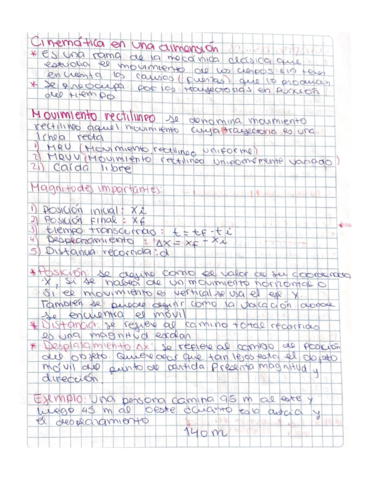 Cinemática en una dimensión
* es una rama de la mecánica clásica que
estudia el movimiento de los cuerpos sin tener
en cuenta las causas (fuerzas) que lo producen
* se preocupa por las trayectorias en función
del tiempo
Movimiento rectilíneo se denomina movimiento
rectilíneo aquel movimiento cuya trayectoria es una
línea recta
1) MRU (Movimiento rectilíneo uniforme)
2) MRUV (Movimiento rectilíneo uniformemente variado)
2.1) Caída libre
Magnitudes importantes
1) Posición inicial: Xi
2) Posición Final: Xf
3) tiempo transcurrido: t = tf - ti
4) Desplazamiento: ΔX = Xf - Xi
5) Distancia recorrida: d
* Posición se define como el valor de su coordenada
X, si se habla de un movimiento horizontal o
si el movimiento es vertical se usa el eje Y
También se puede definir como la ubicación donde
se encuentra el móvil
* Distancia: se refiere al camino total recorrido
es una magnitud escalar
* Desplazamiento ΔX se refiere al cambio de posición
del objeto Quiere decir que tan lejos está el objeto
móvil del punto de partida Presenta magnitud y
dirección.
Ejemplo: Una persona camina 95 m al este y
luego 45 m al oeste ¿cuánto es la distancia y
el desplazamiento
140 m